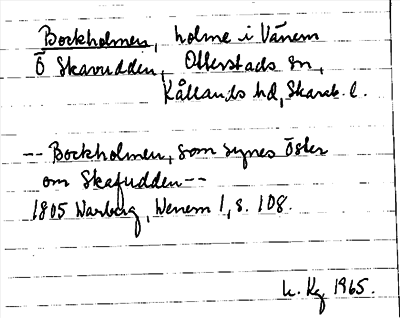 Bockholmen, holme i Vänern
Ö Skavudden, Otterstads sn,
Kållands hd, Skarab. l.
-- Bockholmen, som synes Öster
om Skafudden --
1805 Warberg, Wenern 1, s. 108.
h. Kg 1965.